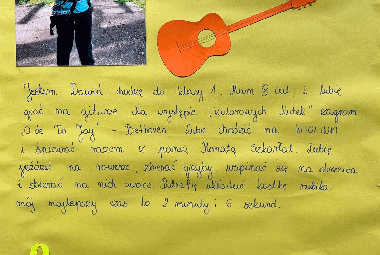 Jestem Dawid chodzę do klasy 1. Mam 8 lat i lubię
grać na gitarze. Na występie „Kolorowych Nutek” zagram
„Ode To Joy” - Bethoven. Lubię chodzić na
i śpiewać razem z panią Renatą. Lubię
jeździć na rowerze, zbierać grzyby, wspinać się na drzewa
i zbierać na nich owoce. Potrafię układać kostkę rubika
mój najlepszy czas to 2 minuty i 6 sekund.